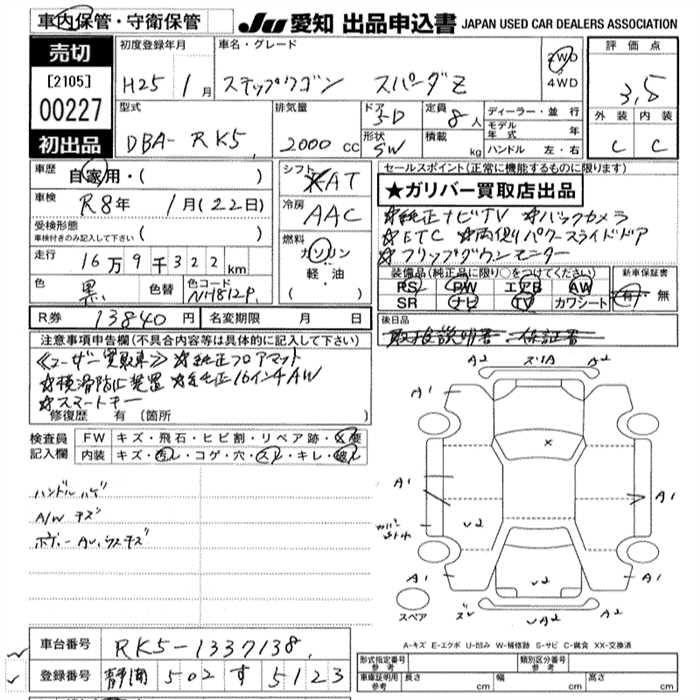 車内保管・守衛保管
JU 愛知 出品申込書 JAPAN USED CAR DEALERS ASSOCIATION
売切
[2105]
00227
初出品
初度登録年月
H25年 1月
車名・グレード
ステップワゴン スパーダZ
2WD
4WD
評価点
3,5
外装 内装
C C
型式
DBA- RK5
排気量
2000 cc
ドア
5D
形状
SW
定員
8人
積載
kg
ディーラー・並行
モデル年式 年
ハンドル 左・右
車歴
自家用・( )
車検
R8年 1月(22日)
受検形態
車検付きのみ記入して下さい ( )
走行
16万9千322km
色
黒
色替
色コード
NH812P
シフト
AT
冷房
AAC
燃料
ガソリン
軽・油
( )
セールスポイント(正常に機能するものに限ります)
★ガリバー買取店出品
☆純正ナビTV ☆バックカメラ
☆ETC ☆両側パワースライドドア
☆フリップダウンモニター
装備品(純正品に限り○をつけてください)
RS PW エアB AW
SR ナビ TV カワシート
新車保証書
有・無
R券 13840円
名変期限 月 日
後日品
取扱説明書・保証書
注意事項申告欄(不具合内容等は具体的に記入して下さい)
≪ユーザー買取車≫ ☆純正フロアマット
☆横滑防止装置 ☆純正16インチAW
☆スマートキー
修復歴 有 (箇所 )
検査員
記入欄
FW キズ・飛石・ヒビ割・リペア跡・X要
内装 キズ・汚レ・コゲ・穴・スレ・キレ・破レ
ハンドル ハゲ
A/W キズ
ボディー AU、ウスキズ
A2 ズ1A A2
A1 A1
A1 A1
U2
A1 A1
U2
A2
スペア
A-キズ E-エクボ U-凹み W-補修跡 S-サビ C-腐食 XX-交換済
車台番号 RK5-1337138
登録番号 静岡 502 す 5123
型式指定番号 参考
類別区分番号 参考
車庫証明用 参考 長さ cm 幅 cm 高さ cm